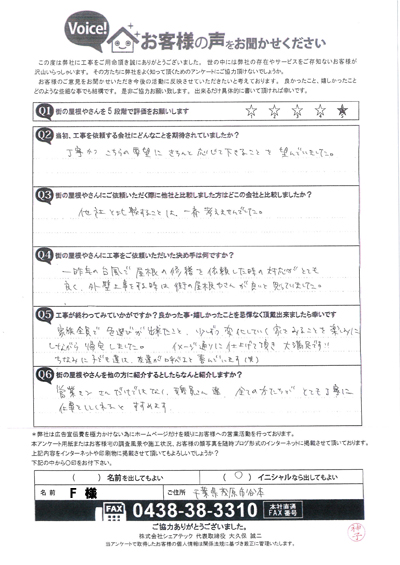 Voice!
お客様の声をお聞かせください
この度は弊社に工事をご用命頂き誠にありがとうございました。世の中には弊社の存在やサービスをご存知ないお客様が
沢山いらっしゃいます。その方たちに弊社をよく知って頂くためのアンケートにご協力頂けないでしょうか。
お客様のご意見をお聞かせいただき今後の活動に反映させていただきたいと考えております。良かったこと、嬉しかったこと
どのような些細な事でも結構です。是非ご協力お願い致します。出来るだけ具体的に書いて頂ければ幸いです。
Q1 街の屋根やさんを5段階で評価をお願いします
☆ ☆ ☆ ☆ ★
Q2 当初、工事を依頼する会社にどんなことを期待されていましたか?
丁寧かつ こちらの要望に きちんと 応じて下さること を 望んでいました。
Q3 街の屋根やさんにご依頼いただく際に他社と比較しました方はどこの会社と比較しましたか?
他社と比較することは、一番 考えませんでした。
Q4 街の屋根やさんに工事をご依頼いただいた決め手は何ですか?
一昨年の台風で 屋根の修理を依頼した時の対応がとても
良く、外壁工事をする時は 街の屋根やさんが良いと 決めていました。
Q5 工事が終わってみていかがですか?良かった事・嬉しかったことを忌憚なく頂戴出来ましたら幸いです
家族全員で 色選びが出来たこと、少しずつ 変化していく 家をみることを 楽しみに
しながら 帰宅しました。 イメージ通りに仕上げて頂き 大満足です!!
ちなみに 子ども達は、
Q6 街の屋根やさんを他の方に紹介するとしたらなんと紹介しますか?
営業マンさんだけでなく、職人さん達、全ての方たちが とても丁寧に
仕事をしてくれると すすめます。
*弊社は広告宣伝費を極力かけない為にホームページだけを頼りにお客様への営業活動を行っております。
本アンケート用紙またはお客様宅の調査風景や施工状況、お客様の顔写真を随時ブログ形式のインターネットに掲載させて頂いております。
上記内容をインターネットや印刷物に掲載させて頂いてもよろしいでしょうか?
下記の中から○印をお付下さい。
( ) 名前を出してもよい
( ○ ) イニシャルなら出してもよい
名前
F 様
ご住所
千葉県茂原市
FAX 0438-38-3310 本社直通 FAX番号
ご協力ありがとうございました。
株式会社シェアテック 代表取締役 大久保 誠二
当アンケートで取得したお客様の個人情報は関係法規に基づき厳正に管理いたします。